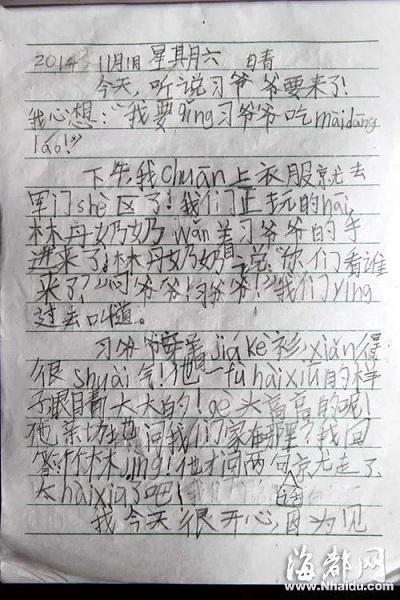 2014. 11月1日 星其月六 日青
今天,听说习爷爷要来了!
我心想:“我要qǐng习爷爷吃màidāng
láo!”
下午,我Chuān上衣服就去
军门shè区了!我们正玩的hāi,
林丹奶奶wǎn羊习爷爷的手
进来了!林丹奶奶说:“你们看谁
来了?”“习爷爷!习爷爷!”我们yíng
过去叫道。
习爷爷穿着jiá ke衫,xiǎn得
很shuài气!他一fù hài xiū的样
子眼睛大大的!gè头高高的呢!
他亲切地问我们家在哪里?我回
答:竹林jìng!他才问两句京尤走了
太hài xiū了吧!
我今天很开心,因为见
海都网
www.Nhaidu.com